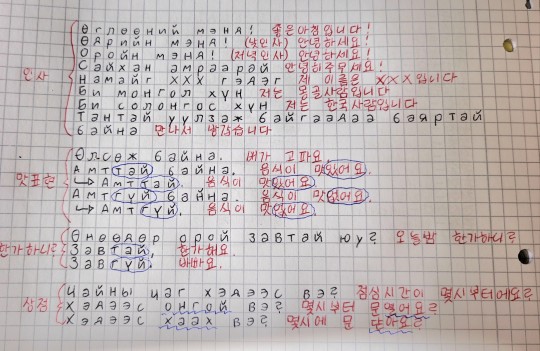 인사
Өглөөний мэнд! 좋은아침입니다!
Өдрийн мэнд! (낮인사) 안녕하세요!
Оройн мэнд! (저녁인사) 안녕하세요!
Сайхан амраарай 안녕히주무세요!
Намайг ХХХ гэдэг 제 이름은 XXX입니다
Би монгол хүн 저는 몽골사람입니다
Би солонгос хүн 저는 한국사람입니다
Тантай уулзаж байгаадаа баяртай
байна 만나서 반갑습니다
맛표현
Өлсөж байна. 배가 고파요.
Амттай байна. 음식이 맛있어요.
↳ Амттай. 음식이 맛있어요.
Амтгүй байна. 음식이 맛없어요.
↳ Амтгүй. 음식이 맛없어요.
한가하니?
Өнөөдөр орой завтай юу? 오늘밤 한가하니?
Завтай. 한가해요.
Завгүй. 바빠요.
상점
Цайны цаг хэдээс вэ? 점심시간이 몇시부터에요?
Хэдээс онгой вэ? 몇시부터 문열어요?
Хэдээс хаах вэ? 몇시에 문 닫아요?